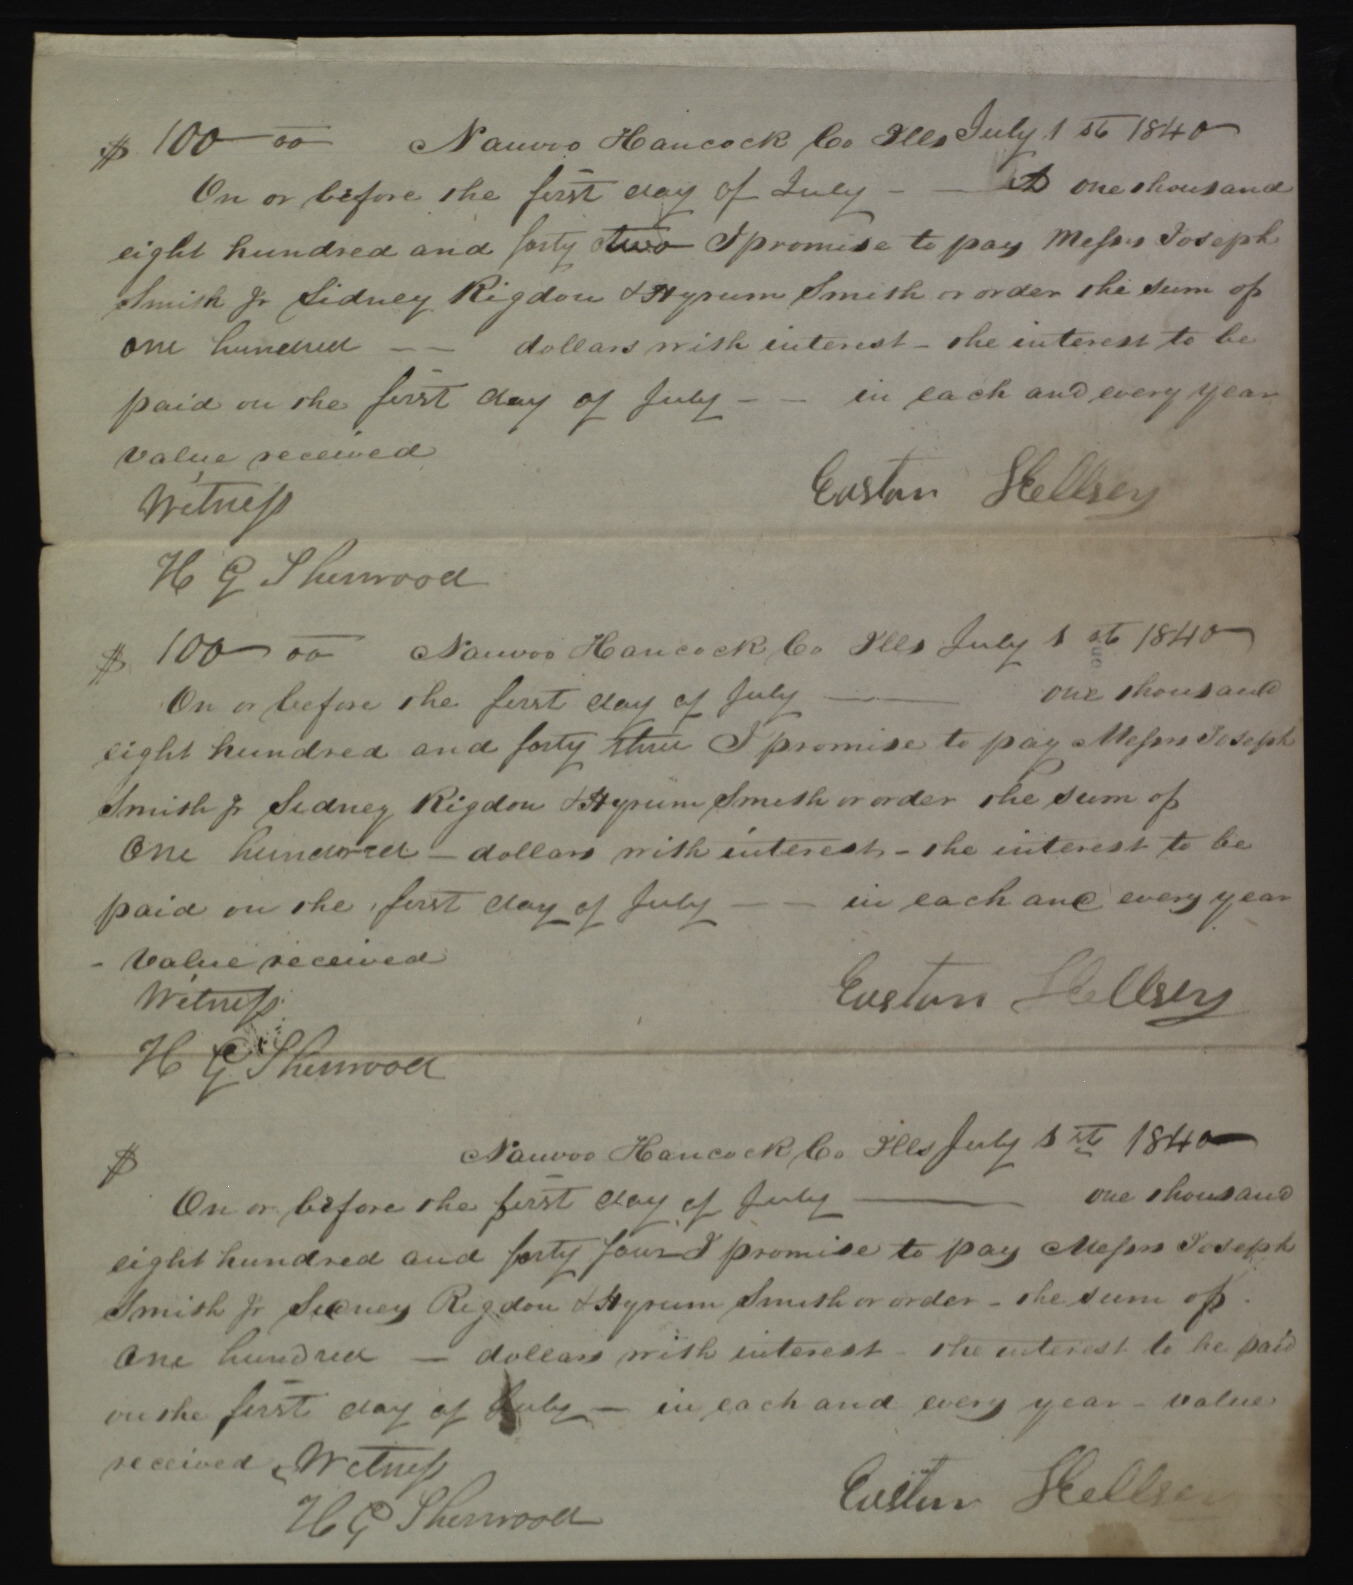 $ 100 00 Nauvoo Hancock Co Ills July 1 st 1840
On or before the first day of July - - one thousand
eight hundred and forty two I promise to pay Messrs Joseph
Smith Jr Sidney Rigdon & Hyrum Smith or order the sum of
one hundred - - dollars with interest - the interest to be
paid on the first day of July - - in each and every year
value received
Easton Kellsey
Witness
H G Sherwood
$ 100 00 Nauvoo Hancock Co Ills July 1 st 1840
On or before the first day of July - one thousand
eight hundred and forty three I promise to pay Messrs Joseph
Smith Jr Sidney Rigdon & Hyrum Smith or order the sum of
One hundred - dollars with interest - the interest to be
paid on the first day of July - - in each and every year
- value received
Easton Kellsey
Witness
H G Sherwood
$ Nauvoo Hancock Co Ills July 1 st 1840
On or before the first day of July - one thousand
eight hundred and forty four I promise to pay Messrs Joseph
Smith Jr Sidney Rigdon & Hyrum Smith or order - the sum of
One hundred - dollars with interest - the interest to be paid
on the first day of July - in each and every year - value
received Witness
Easton Kellsey
H G Sherwood